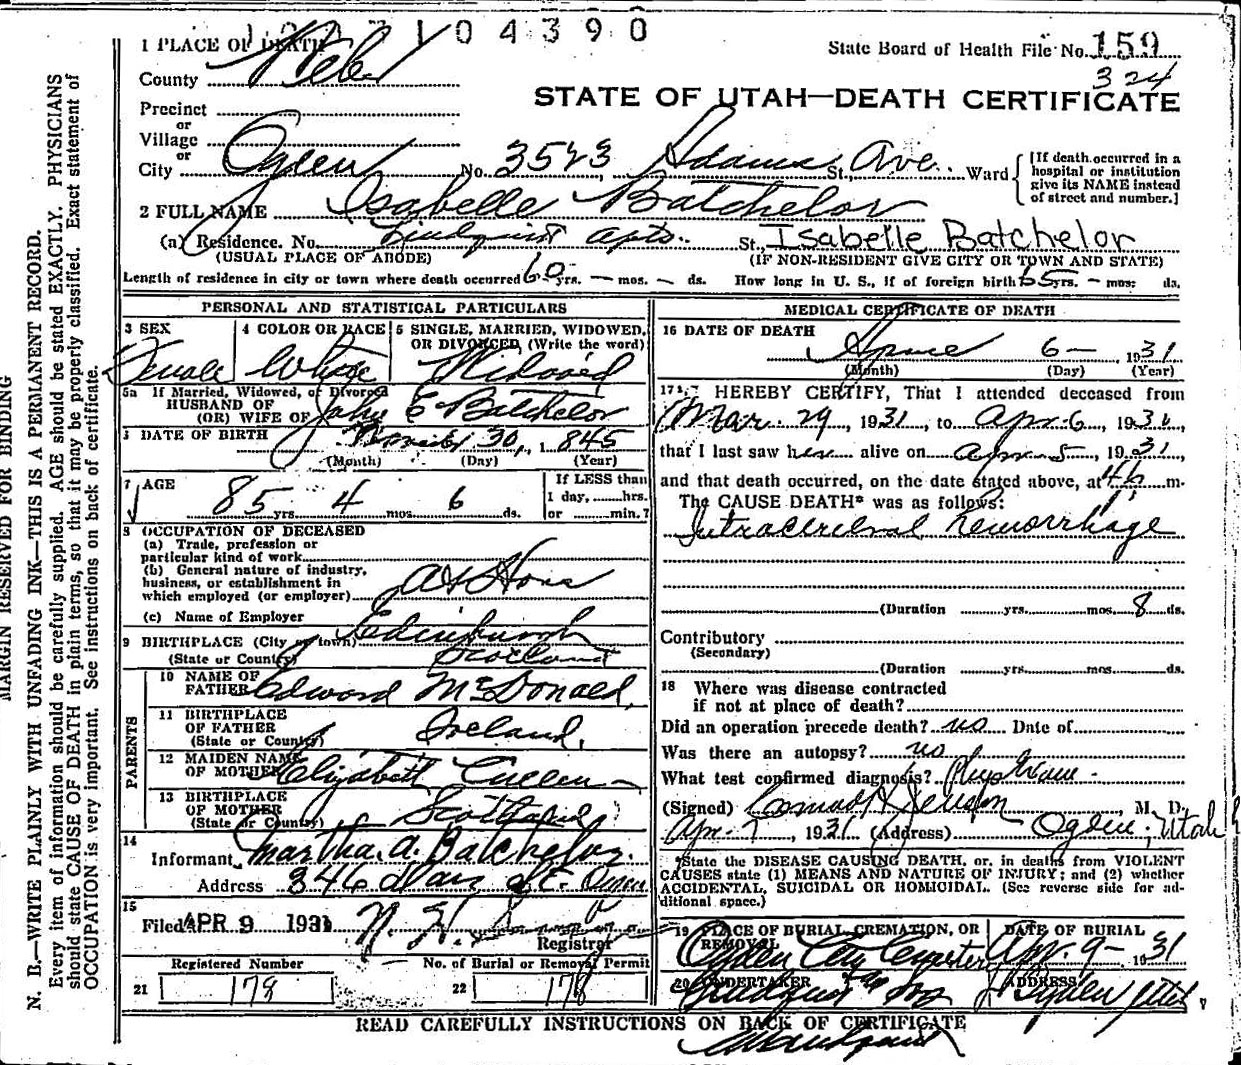 104390
1 PLACE OF DEATH
State Board of Health File No. 159
324
County Weber
STATE OF UTAH—DEATH CERTIFICATE
Precinct
or
Village
or
City Ogden No. 3523, Adams St., Ave. Ward
[If death occurred in a hospital or institution give its NAME instead of street and number.]
2 FULL NAME Isabelle Batchelor
(a) Residence. No. Lindquist Apts. St., Isabelle Batchelor
(USUAL PLACE OF ABODE) (IF NON-RESIDENT GIVE CITY OR TOWN AND STATE)
Length of residence in city or town where death occurred 60 yrs. — mos. — ds. How long in U. S., if of foreign birth 65 yrs. — mos. ds.
PERSONAL AND STATISTICAL PARTICULARS
3 SEX Female
4 COLOR OR RACE White
5 SINGLE, MARRIED, WIDOWED, OR DIVORCED, (Write the word) Widowed
5a If Married, Widowed, or Divorced
HUSBAND OF
(OR) WIFE OF John E Batchelor
DATE OF BIRTH 30, 1845
(Month) (Day) (Year)
7 AGE 85 yrs 4 mos 6 ds.
If LESS than 1 day, hrs. or min.?
8 OCCUPATION OF DECEASED
(a) Trade, profession or particular kind of work
(b) General nature of industry, business, or establishment in which employed (or employer) At Home
(c) Name of Employer
9 BIRTHPLACE (City or town) Edinburgh
(State or Country) Scotland
PARENTS
10 NAME OF FATHER Edward McDonald,
11 BIRTHPLACE OF FATHER (State or Country) Ireland,
12 MAIDEN NAME OF MOTHER Elizabeth Cullen
13 BIRTHPLACE OF MOTHER (State or Country) Scotland
14
Informant Martha. A. Batchelor.
Address 346 St. Ogden
15
Filed APR 9 1931
Registrar
Registered Number No. of Burial or Removal Permit
21 178 22 178
MEDICAL CERTIFICATE OF DEATH
16 DATE OF DEATH
April 6— 1931
(Month) (Day) (Year)
17 I HEREBY CERTIFY, That I attended deceased from
Mar. 29, 1931, to Apr. 6, 1931,
that I last saw her alive on Apr. 5, 1931,
and that death occurred, on the date stated above, at m.
The CAUSE DEATH* was as follows:
Intracerebral hemorrhage
(Duration yrs. mos. 8 ds.
Contributory
(Secondary)
(Duration yrs. mos. ds.
18 Where was disease contracted
if not at place of death?
Did an operation precede death? no Date of
Was there an autopsy? no
What test confirmed diagnosis?
(Signed) Conrad H Jenson, M. D.
Apr. 7, 1931 (Address) Ogden, Utah
*State the DISEASE CAUSING DEATH, or, in deaths from VIOLENT
CAUSES state (1) MEANS AND NATURE OF INJURY; and (2) whether
ACCIDENTAL, SUICIDAL OR HOMICIDAL. (See reverse side for additional space.)
19 PLACE OF BURIAL, CREMATION, OR REMOVAL Ogden City Cemetery
DATE OF BURIAL Apr. 9- 1931
20 UNDERTAKER Lindquist
ADDRESS Ogden Utah
READ CAREFULLY INSTRUCTIONS ON BACK OF CERTIFICATE
MARGIN RESERVED FOR BINDING
N. B.—WRITE PLAINLY WITH UNFADING INK—THIS IS A PERMANENT RECORD.
Every item of information should be carefully supplied. AGE should be stated EXACTLY. PHYSICIANS
should state CAUSE OF DEATH in plain terms, so that it may be properly classified. Exact statement of
OCCUPATION is very important. See instructions on back of certificate.